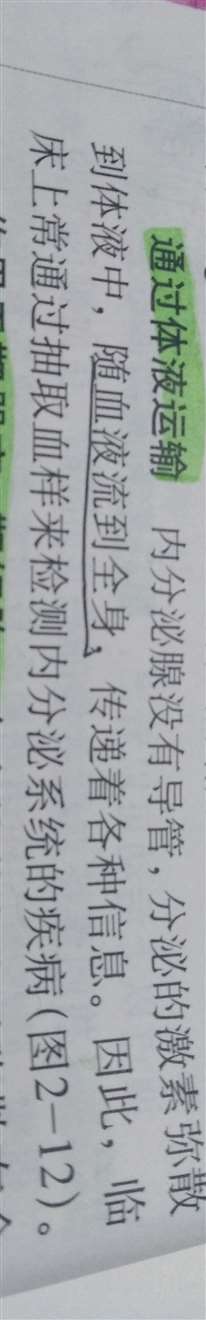 通过体液运输 内分泌腺没有导管，分泌的激素弥散
到体液中，随血液流到全身，传递着各种信息。因此，临
床上常通过抽取血样来检测内分泌系统的疾病（图2-12）。